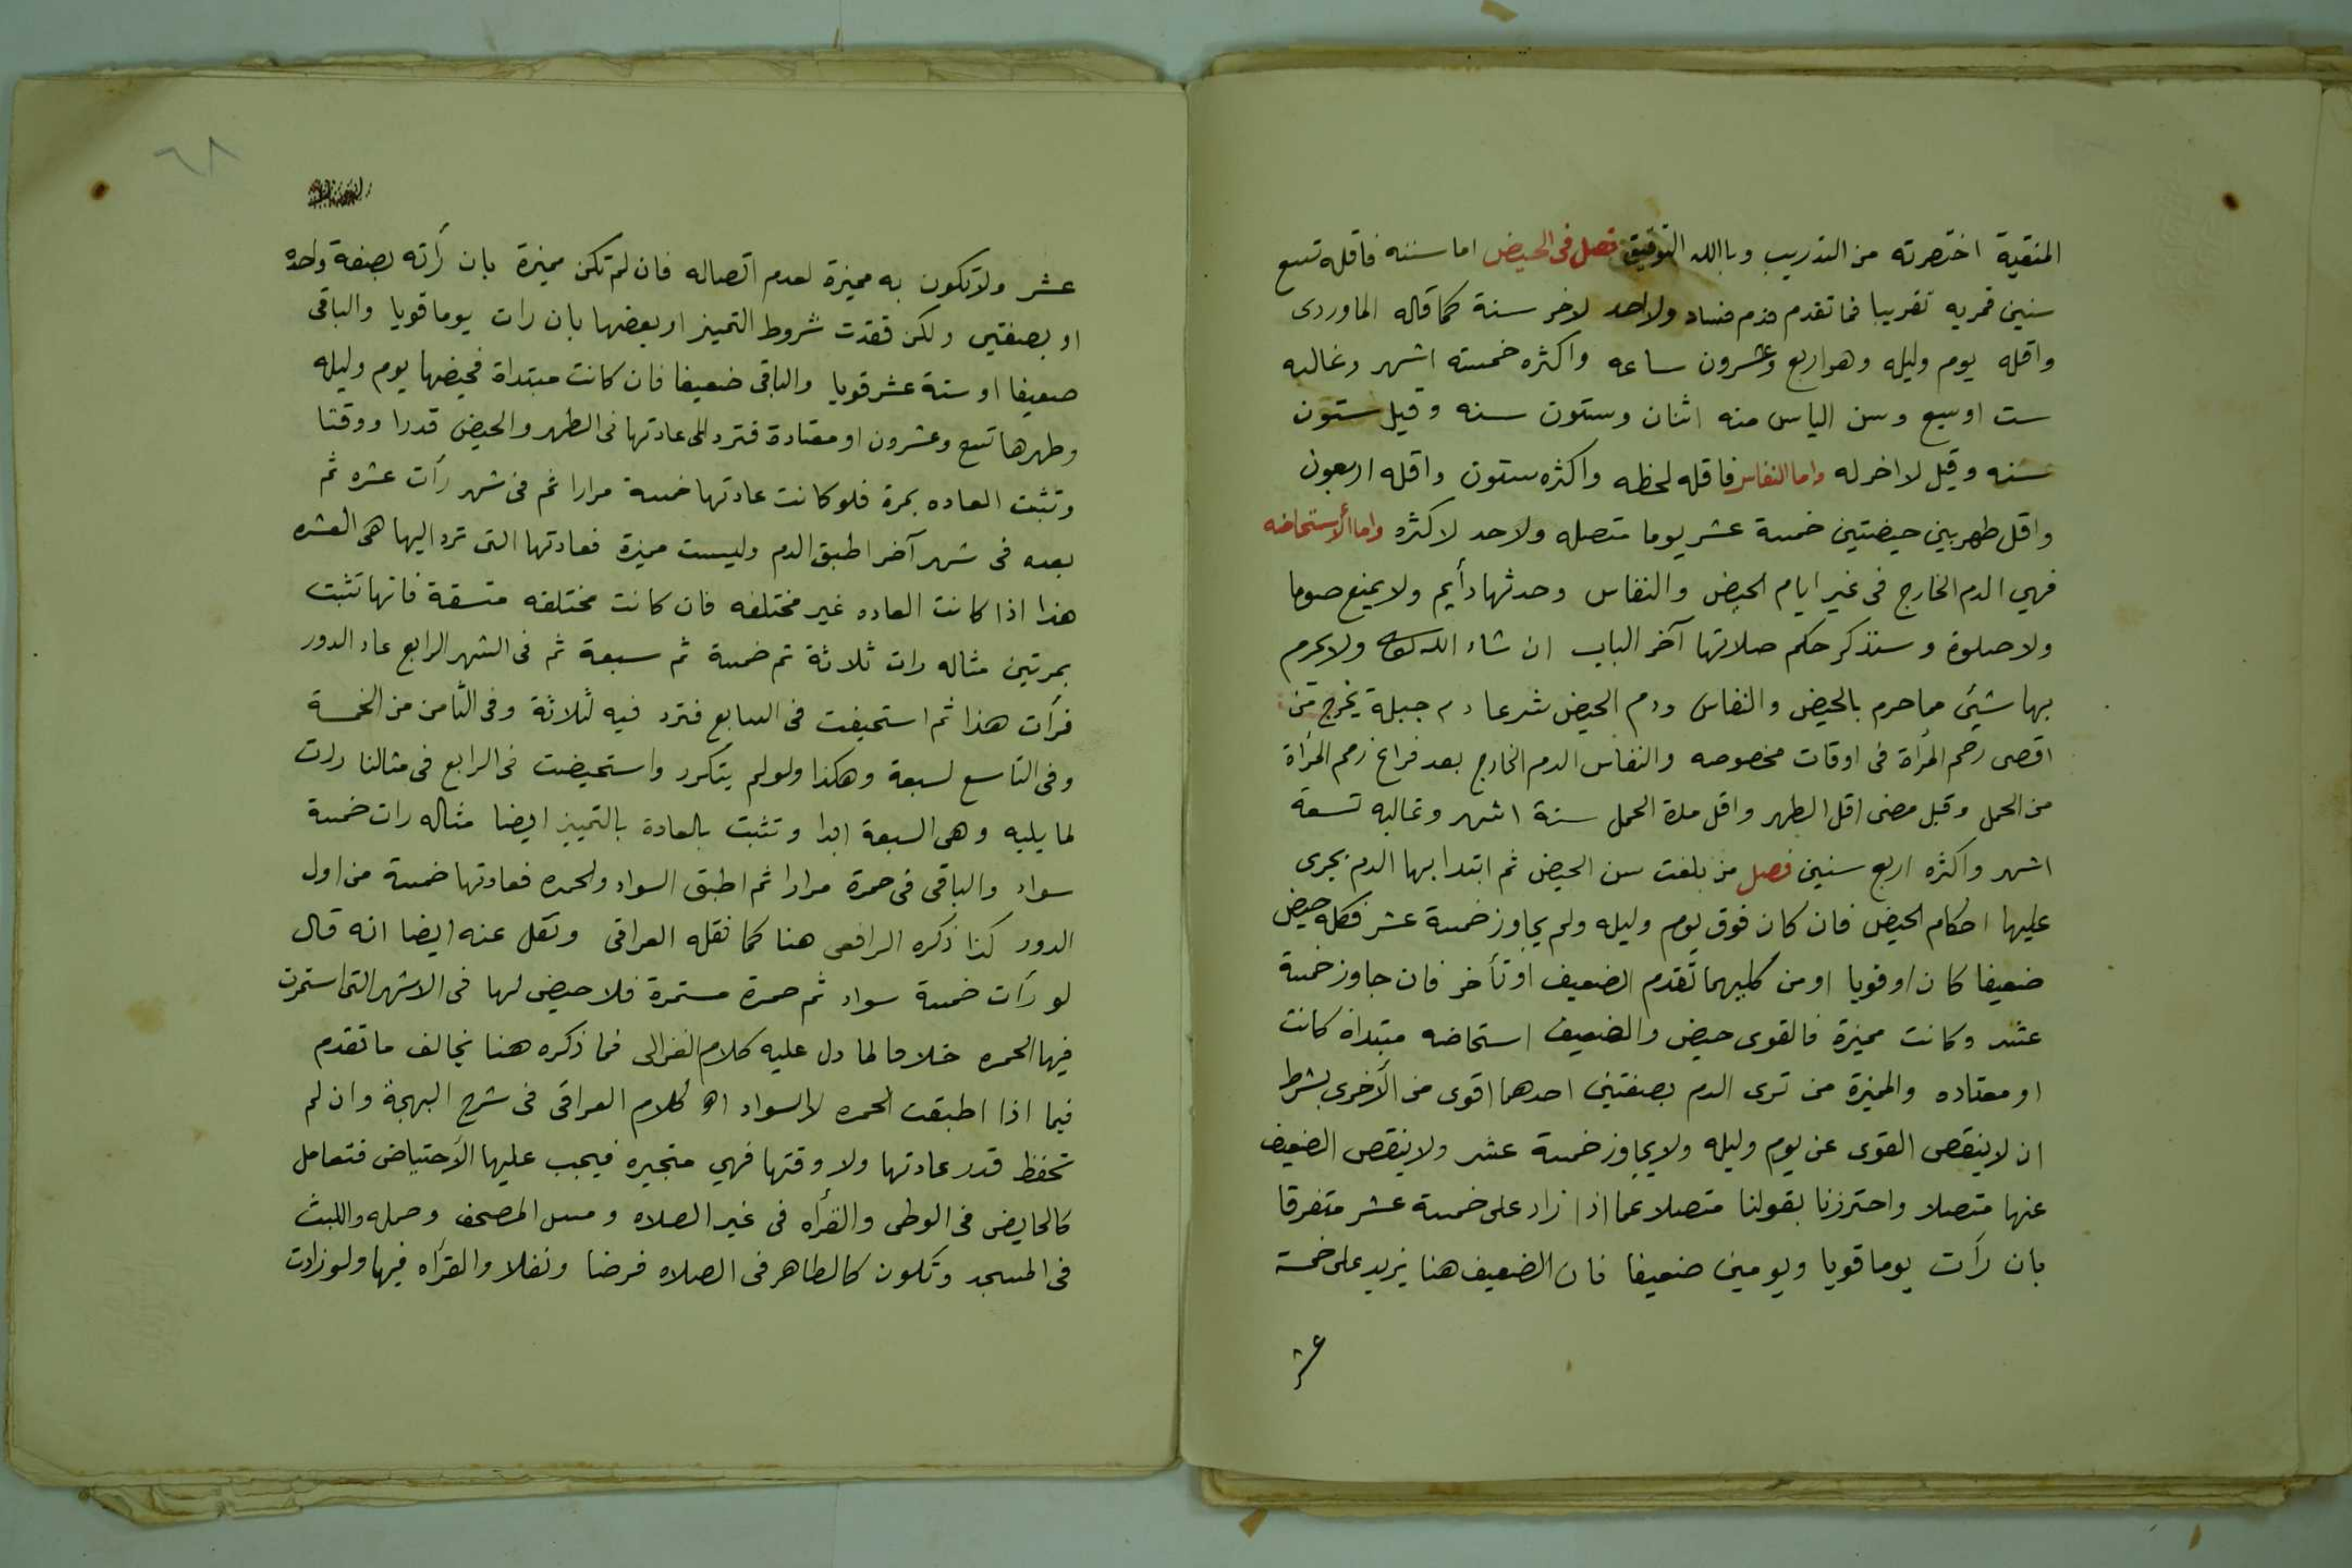 المنقية اختصرته من التدريب وباالله التوفيق فصل فى الحيض اما سننه فاقله تسع
سنين قمريه تقريبا فما تقدم فدم فساد ولاحد لاخر سنة كما قاله الماوردى
واقله يوم وليله وهو اربع وعشرون ساعه واكثره خمسته اشهر وغالبه
ست اوسبع وسن الياس منه اثنان وستون سنه وقيل ستون
سنه وقيل لا اخر له واما النفاس فاقله لحظه واكثره ستون واقله اربعون
واقل طهر بين حيضتين خمسة عشر يوما متصله ولاحد لاكثره واما ألاستحاضه
فهي الدم الخارج فى غير ايام الحيض والنفاس وحدثها دأيم ولا يمنع صوما
ولا صلوة وسنذكر حكم صلاتها آخر الباب ان شاء الله ولا يحرم
بها شيئ مما حرم بالحيض والنفاس ودم الحيض شرعا دم جبلة يخرج من
اقصى رحم المرأة فى اوقات مخصوصه والنفاس الدم الخارج بعد فراغ رحم المرأة
من الحمل وقبل مضى اقل الطهر واقل مدة الحمل ستة اشهر وغالبه تسعة
اشهر واكثره اربع سنين فصل من بلغت سن الحيض ثم ابتدا بها الدم يجرى
عليها احكام الحيض فان كان فوق يوم وليله ولم يجاوز خمسة عشر فكله حيض
ضعيفا كان اوقويا او من كليهما تقدم الضعيف اوتأخر فان جاوز خمسة
عشر وكانت مميزة فالقوى حيض والضعيف استحاضه مبتداة كانت
او معتاده والمميزة من ترى الدم بصفتين احدهما اقوى من الأخرى بشرط
ان لا ينقص القوى عن يوم وليله ولا يجاوز خمسة عشر ولا ينقص الضعيف
عنها متصلا واحترزنا بقولنا متصلا عما اذا زاد على خمسة عشر متفرقا
بان رأت يوما قويا ويومين ضعيفا فان الضعيف هنا يزيد على خمسة
عشر
٦٨
عشر ولا تكون به مميزة لعدم اتصاله فان لم تكن مميزة بان رأته بصفة واحده
او بصفتين ولكن فقدت شروط التميز او بعضها بان رات يوما قويا والباقى
ضعيفا او ستة عشر قويا والباقى ضعيفا فان كانت مبتداة فحيضها يوم وليله
وطهرها تسع وعشرون او معتادة فترد الى عادتها فى الطهر والحيض قدرا ووقتا
وتثبت العاده بمرة فلو كانت عادتها خمسة مرارا ثم فى شهر رأت عشره ثم
بعده فى شهر آخر اطبق الدم وليست مميزة فعادتها التى ترد اليها هى العشره
هذا اذا كانت العاده غير مختلفه فان كانت مختلفه متسقة فانها تثبت
بمرتين مثاله رات ثلاثة ثم خمسة ثم سبعة ثم فى الشهر الرابع عاد الدور
فرأت هذا ثم استحيضت فى السابع فترد فيه لثلاثة وفى الثامن من الخمسة
وفى التاسع لسبعة وهكذا ولو لم يتكرر واستحيضت فى الرابع فى مثالنا ردت
لما يليه وهى السبعة ابدا وتثبت بالعادة بالتمييز ايضا مثاله رات خمسة
سواد والباقى فى حمرة مرارا ثم اطبق السواد والحمره فعادتها خمسة من اول
الدور كذا ذكره الرافعى هنا كما نقله العراقى ونقل عنه ايضا انه قال
لو رأت خمسة سواد ثم حمرة مستمرة فلا حيض لها فى الاشهر التى استمرت
فيها الحمره خلافا لما دل عليه كلام الغزالى فما ذكره هنا يخالف ما تقدم
فيما اذا اطبقت الحمره لا السواد اه كلام العراقى فى شرح البهجة وان لم
تحفظ قدر عادتها ولا وقتها فهي متحيره فيجب عليها الأحتياض فتعامل
كالحايض فى الوطى والقرأه فى غير الصلاه ومس المصحف وحمله واللبث
فى المسجد وتكون كالطاهر فى الصلاه فرضا ونفلا والقرأه فيها ولو زادت